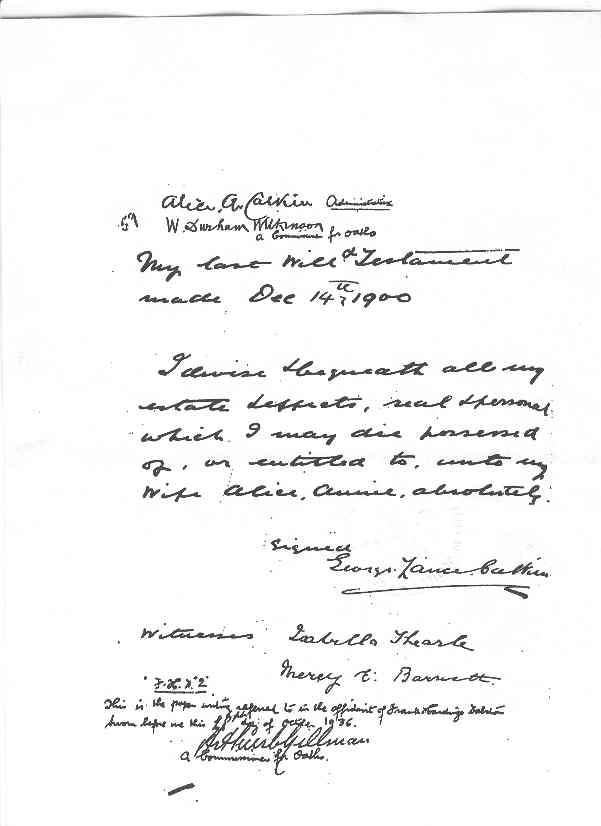 Alice. A. Calkin Administratrix
W. Durham Wilkinson
a Commissioner for Oaths
My last Will & Testament
made Dec 14th, 1900
I devise & bequeath all my
estate & effects, real & personal
which I may die possessed
of, or entitled to, unto my
Wife Alice, Annie, absolutely.
Signed
George Lance Calkin
Witnesses Isabella Thearle
Mercy E. Barnett.
F.H.D."2"
This is the paper writing referred to in the affidavit of Frank Hardinge
sworn before me this day of October 1936.
Arthur b Gillman
a Commissioner for Oaths.